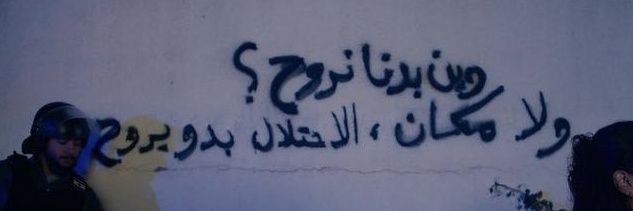 وين بدنا نروح؟
ولا مكان، الاحتلال بدو يروح